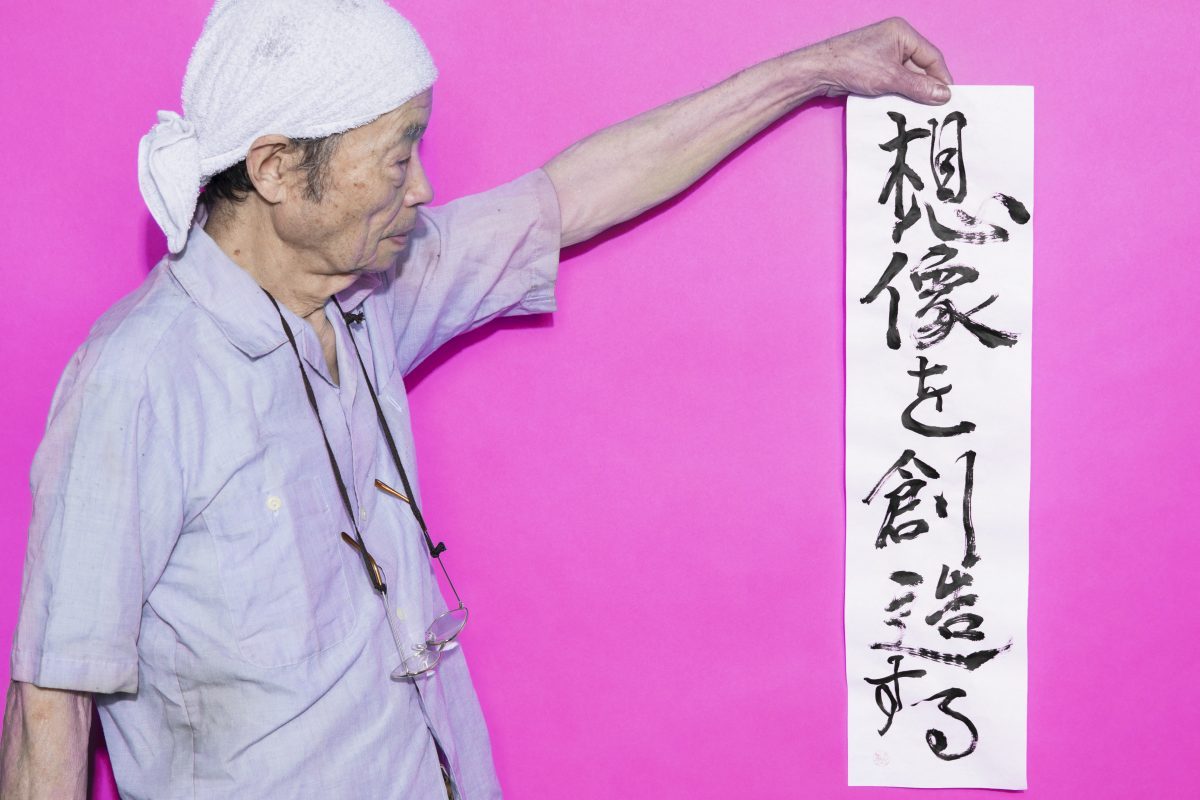 想像を創造する